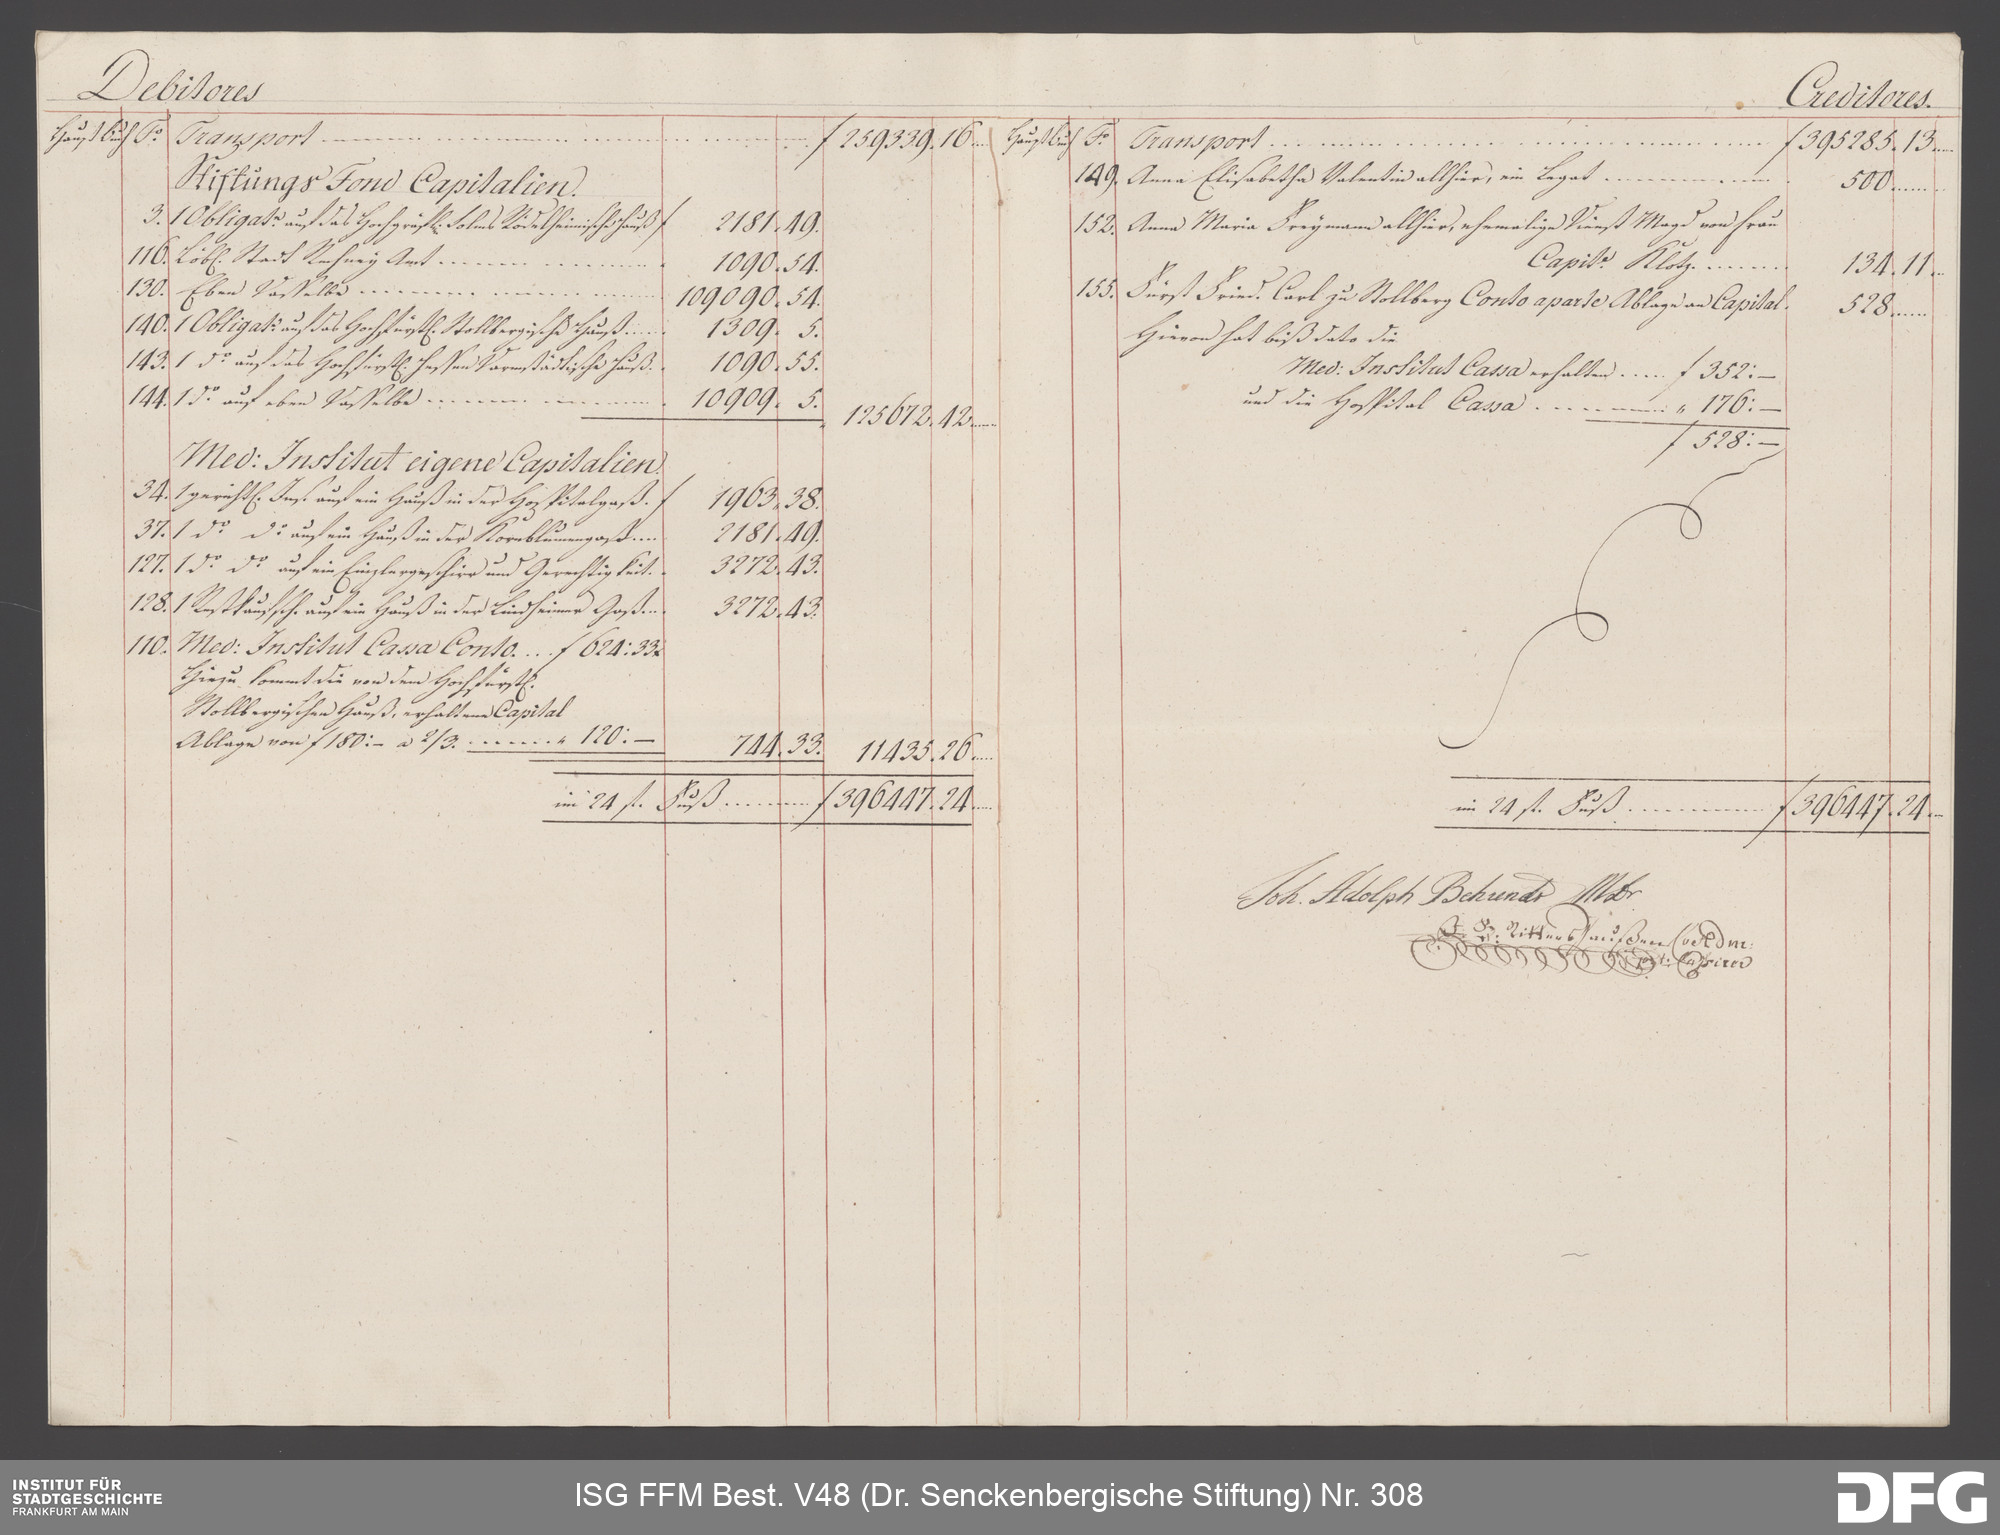 Debitores
Hauptbuch Fo. Transport f 259339. 16.
Stiftungs Fond Capitalien.
3. 1 Obligat: auf das Hochgräfl: Solms Rödelheimische Hauß f 2181. 49.
116. Löbl. Stadt Rechney Amt 1090. 54.
130. Eben Dasselbe 109090. 54.
140. 1 Obligat: auf das Hochfürstl. Stollbergische Hauß 1309. 5.
143. 1 do auf das Hochfürstl. Hessen Darmstädtische Hauß. 1090. 55.
144. 1 do auf eben Dasselbe 10909. 5. 125672. 42.
Med: Institut eigene Capitalien.
34. 1 gerichtl. Ins. auf ein Hauß in der Hospitalgaß. f 1963. 38.
37. 1 do do auf ein Hauß in der Kornblumengaß 2181. 49.
127. 1 do do auf ein und Gerechtigkeit. 3272. 43.
128. 1 auf ein Hauß in der Lindheimer Gaß 3272. 43.
110. Med: Institut Cassa Conto. f 624: 33
Hiezu kommt die von dem Hochfürstl.
Stollbergischen Hauß, erhaltene Capital
Ablage von f 180:– a 2/3. " 120:– 744. 33. 11435. 26.
im 24 fl. Fuß f 396447. 24.
Creditores.
Hauptbuch Fo. Transport f 395285. 13.
149. Anna Elisabetha Valentin allhier, ein Legat 500
152. Anna Maria Freymann allhier, ehemalige Dienst Magd von Frau
Capit. Klotz 134. 11.
155. Fürst Fried. Carl zu Stollberg Conto aparte Ablage an Capital. 528
Hievon hat biß dato die
Med: Institut Cassa erhalten f 352:–
und die Hospital Cassa " 176:–
f 528:–
im 24 fl. Fuß f 396447. 24.
Joh. Adolph Behrends MDr.
Rittershaußen
Cassirer
INSTITUT FÜR
STADTGESCHICHTE
FRANKFURT AM MAIN
ISG FFM Best. V48 (Dr. Senckenbergische Stiftung) Nr. 308
DFG